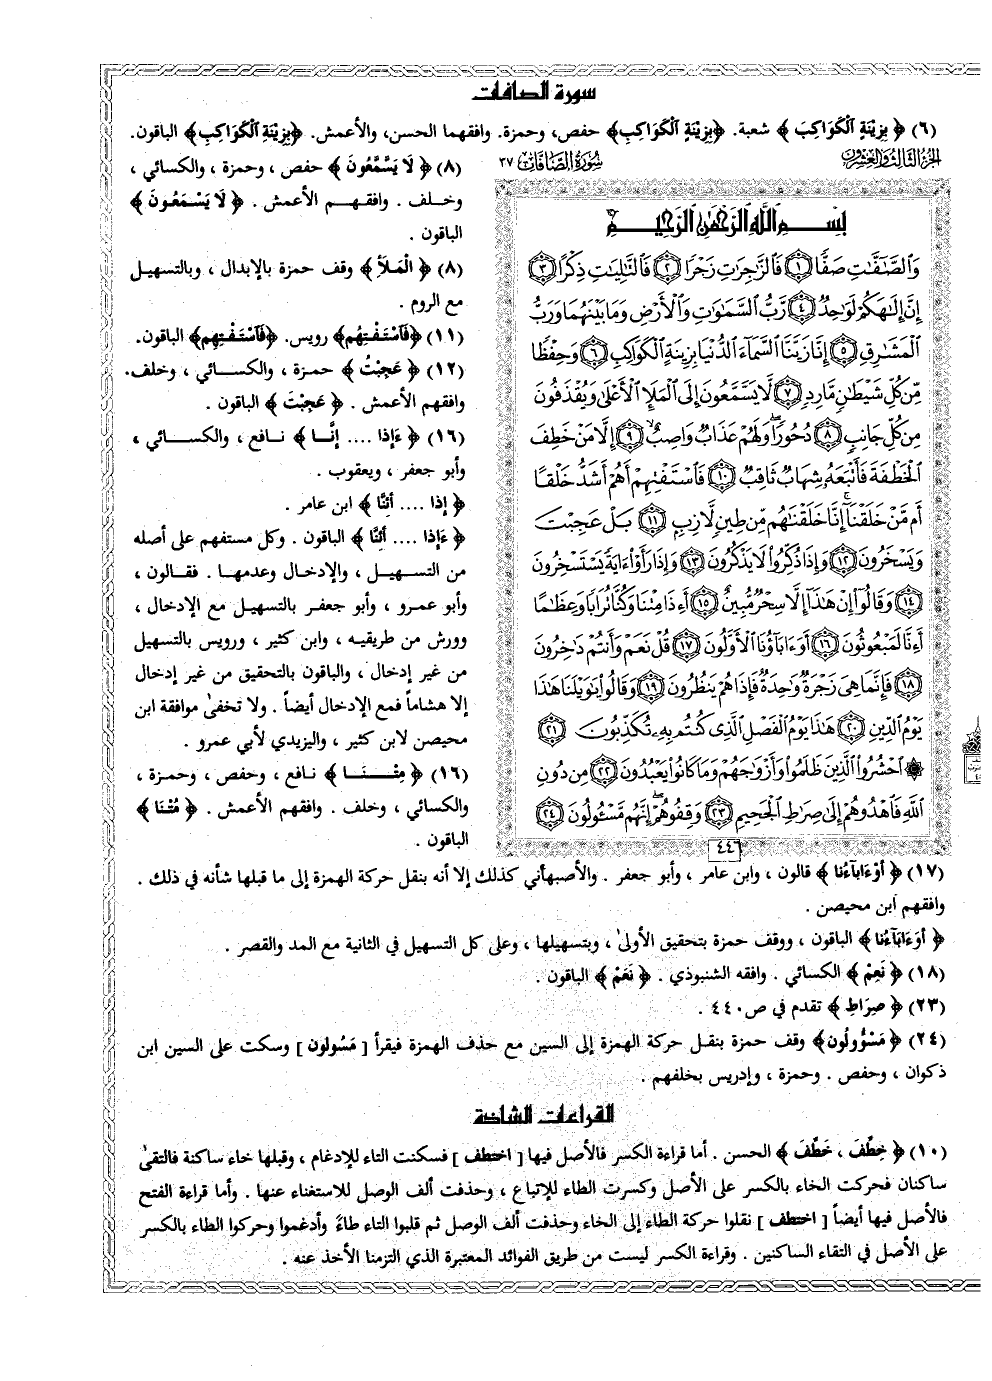 سورة الصافات
(٦) ﴿ بِزِينَةٍ الْكَوَاكِبَ ﴾ شعبة. ﴿بِزِينَةٍ الْكَوَاكِبِ﴾ حفص، وحمزة. وافقهما الحسن، والأعمش. ﴿بِزِينَةِ الْكَوَاكِبِ﴾ الباقون.
الجزء الثالث والعشرون
سورة الصافات ٣٧
بِسْمِ اللَّهِ الرَّحْمَٰنِ الرَّحِيمِ
وَالصَّٰٓفَّٰتِ صَفًّا ١ فَالزَّٰجِرَٰتِ زَجْرًا ٢ فَالتَّٰلِيَٰتِ ذِكْرًا ٣
إِنَّ إِلَٰهَكُمْ لَوَٰحِدٌ ٤ رَّبُّ السَّمَٰوَٰتِ وَالْأَرْضِ وَمَا بَيْنَهُمَا وَرَبُّ
الْمَشَٰرِقِ ٥ إِنَّا زَيَّنَّا السَّمَآءَ الدُّنْيَا بِزِينَةٍ الْكَوَاكِبِ ٦ وَحِفْظًا
مِّن كُلِّ شَيْطَٰنٍ مَّارِدٍ ٧ لَّا يَسَّمَّعُونَ إِلَى الْمَلَإِ الْأَعْلَىٰ وَيُقْذَفُونَ
مِن كُلِّ جَانِبٍ ٨ دُحُورًا ۖ وَلَهُمْ عَذَابٌ وَاصِبٌ ٩ إِلَّا مَنْ خَطِفَ
الْخَطْفَةَ فَأَتْبَعَهُۥ شِهَابٌ ثَاقِبٌ ١٠ فَاسْتَفْتِهِمْ أَهُمْ أَشَدُّ خَلْقًا
أَم مَّنْ خَلَقْنَآ ۚ إِنَّا خَلَقْنَٰهُم مِّن طِينٍ لَّازِبٍ ١١ بَلْ عَجِبْتَ
وَيَسْخَرُونَ ١٢ وَإِذَا ذُكِّرُوا لَا يَذْكُرُونَ ١٣ وَإِذَا رَأَوْا ءَايَةً يَسْتَسْخِرُونَ
١٤ وَقَالُوٓا إِنْ هَٰذَآ إِلَّا سِحْرٌ مُّبِينٌ ١٥ أَءِذَا مِتْنَا وَكُنَّا تُرَابًا وَعِظَٰمًا
أَءِنَّا لَمَبْعُوثُونَ ١٦ أَوَءَابَآؤُنَا الْأَوَّلُونَ ١٧ قُلْ نَعَمْ وَأَنتُمْ دَٰخِرُونَ
١٨ فَإِنَّمَا هِىَ زَجْرَةٌ وَٰحِدَةٌ فَإِذَا هُمْ يَنظُرُونَ ١٩ وَقَالُوا يَٰوَيْلَنَا هَٰذَا
يَوْمُ الدِّينِ ٢٠ هَٰذَا يَوْمُ الْفَصْلِ الَّذِى كُنتُم بِهِۦ تُكَذِّبُونَ ٢١
۞ احْشُرُوا الَّذِينَ ظَلَمُوا وَأَزْوَٰجَهُمْ وَمَا كَانُوا يَعْبُدُونَ ٢٢ مِن دُونِ
اللَّهِ فَاهْدُوهُمْ إِلَىٰ صِرَٰطِ الْجَحِيمِ ٢٣ وَقِفُوهُمْ ۖ إِنَّهُم مَّسْـُٔولُونَ ٢٤
٤٤٦
(٨) ﴿ لَا يَسَّمَّعُونَ ﴾ حفص ، وحمزة ، والكسائي ،
وخلف . وافقهم الأعمش . ﴿ لَا يَسْمَعُونَ ﴾
الباقون .
(٨) ﴿ الْمَلَأِ ﴾ وقف حمزة بالإبدال ، وبالتسهيل
مع الروم .
(١١) ﴿فَاسْتَفْتِهُم﴾ رويس. ﴿فَاسْتَفْتِهِم﴾ الباقون.
(١٢) ﴿ عَجِبْتُ ﴾ حمزة ، والكسائي ، وخلف.
وافقهم الأعمش . ﴿ عَجِبْتَ ﴾ الباقون .
(١٦) ﴿ ءَإِذَا .... إِنَّا ﴾ نافع ، والكسائي ،
وأبو جعفر ، ويعقوب .
﴿ إِذا .... أَئِنَّا ﴾ ابن عامر .
﴿ ءَإِذَا .... أَئِنَّا ﴾ الباقون . وكل مستفهم على أصله
من التسهيل ، والإدخال وعدمها . فقالون ،
وأبو عمرو ، وأبو جعفر بالتسهيل مع الإدخال ،
وورش من طريقيه ، وابن كثير ، ورويس بالتسهيل
من غير إدخال ، والباقون بالتحقيق من غير إدخال
إلا هشاماً فمع الإدخال أيضاً . ولا تخفىٰ موافقة ابن
محيصن لابن كثير ، واليزيدي لأبي عمرو .
(١٦) ﴿ مِتْنَا ﴾ نافع ، وحفص ، وحمزة ،
والكسائي ، وخلف . وافقهم الأعمش . ﴿ مُتْنَا ﴾
الباقون .
(١٧) ﴿ أَوْءَابَآءُنَا ﴾ قالون ، وابن عامر ، وأبو جعفر . والأصبهاني كذلك إلا أنه بنقل حركة الهمزة إلى ما قبلها شأنه في ذلك .
وافقهم ابن محيصن .
﴿ أَوَءَابَآءُنَا ﴾ الباقون ، ووقف حمزة بتحقيق الأولىٰ ، وبتسهيلها ، وعلى كل التسهيل في الثانية مع المد والقصر .
(١٨) ﴿ نَعِمْ ﴾ الكسائي . وافقه الشنبوذي . ﴿ نَعَمْ ﴾ الباقون .
(٢٣) ﴿ صِرَاطِ ﴾ تقدم في ص٤٤٠ .
(٢٤) ﴿ مَسْؤُولُون﴾ وقف حمزة بنقل حركة الهمزة إلى السين مع حذف الهمزة فيقرأ [ مَسُولون ] وسكت على السين ابن
ذكوان ، وحفص . وحمزة ، وإدريس بخلفهم .
القراءات الشاذة
(١٠) ﴿ خِطِّفَ ، خَطِّفَ ﴾ الحسن . أما قراءة الكسر فالأصل فيها [ اختطف ] فسكنت التاء للإدغام ، وقبلها خاء ساكنة فالتقىٰ
ساكنان فحركت الخاء بالكسر على الأصل وكسرت الطاء للإتباع ، وحذفت ألف الوصل للاستغناء عنها . وأما قراءة الفتح
فالأصل فيها أيضاً [ اختطف ] نقلوا حركة الطاء إلى الخاء وحذفت ألف الوصل ثم قلبوا التاء طاءً وأدغموا وحركوا الطاء بالكسر
على الأصل في التقاء الساكنين . وقراءة الكسر ليست من طريق الفوائد المعتبرة الذي التزمنا الأخذ عنه .